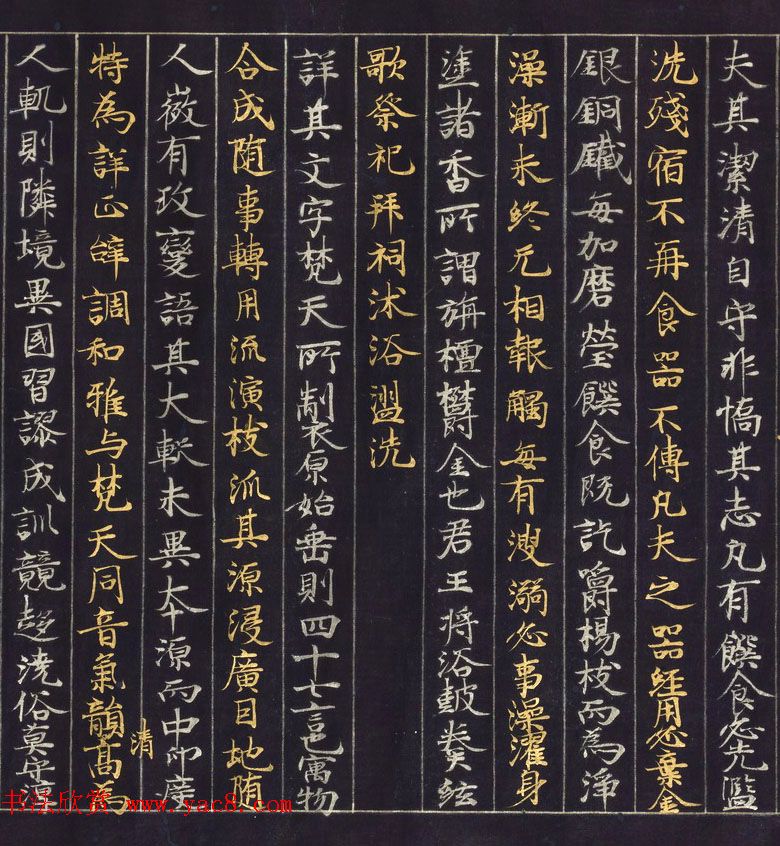 夫其潔清自守非憍其志凡有饌食必先盥
洗殘宿不再食器不傳凡夫之器經用必棄金
銀銅鐵每加磨瑩饌食既訖嚼楊枝而為淨
澡漱未終无相執觸每有溲溺必事澡濯身
塗諸香所謂旃檀欝金也君王將浴鼓奏絃
歌祭祀拜祠沐浴盥洗
詳其文字梵天所製原始垂則四十七言也寓物
合成随事轉用流演枝派其源浸廣因地随
人微有改變語其大較未異本源而中印度
特為詳正辞調和雅与梵天同音氣韻清髙為
人軌則隣境異國習謬成訓競趍澆俗莫守淳
书法欣赏 www.yac8.com